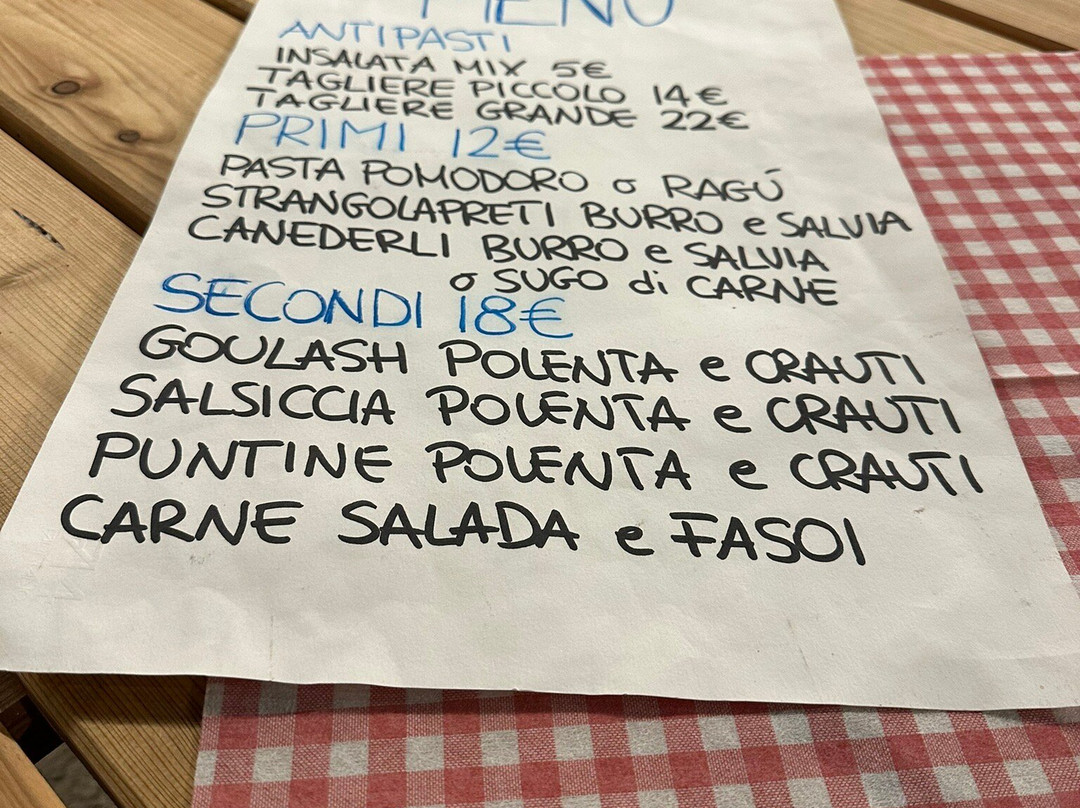 MENU
ANTIPASTI
INSALATA MIX 5€
TAGLIERE PICCOLO 14€
TAGLIERE GRANDE 22€
PRIMI 12€
PASTA POMODORO o RAGÚ
STRANGOLAPRETI BURRO e SALVIA
CANEDERLI BURRO e SALVIA
o SUGO di CARNE
SECONDI 18€
GOULASH POLENTA e CRAUTI
SALSICCIA POLENTA e CRAUTI
PUNTINE POLENTA e CRAUTI
CARNE SALADA e FASOI